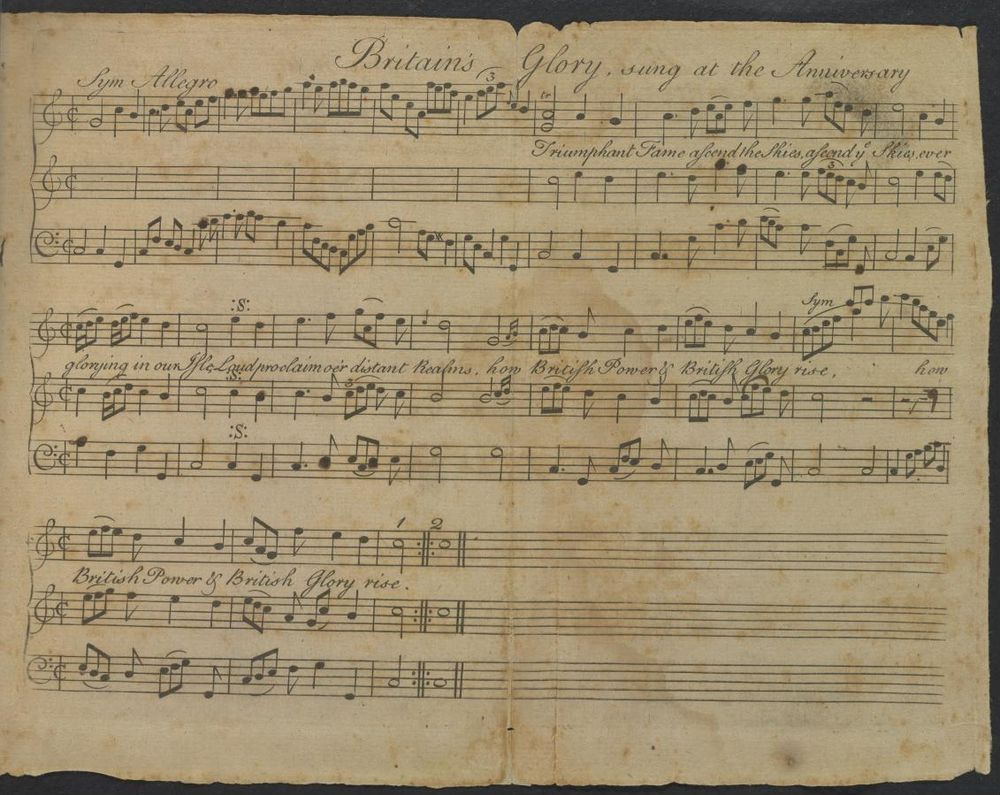 Britain's Glory, sung at the Anniversary
Sym Allegro
3
Triumphant Fame ascend the Skies, ascend yͤ Skies, ever
3
Sym
:S:
glorying in our Isle Loud proclaim oér distant Realms, how British Power & British Glory rise, how
:S:
3
:S:
1 2
British Power & British Glory rise.